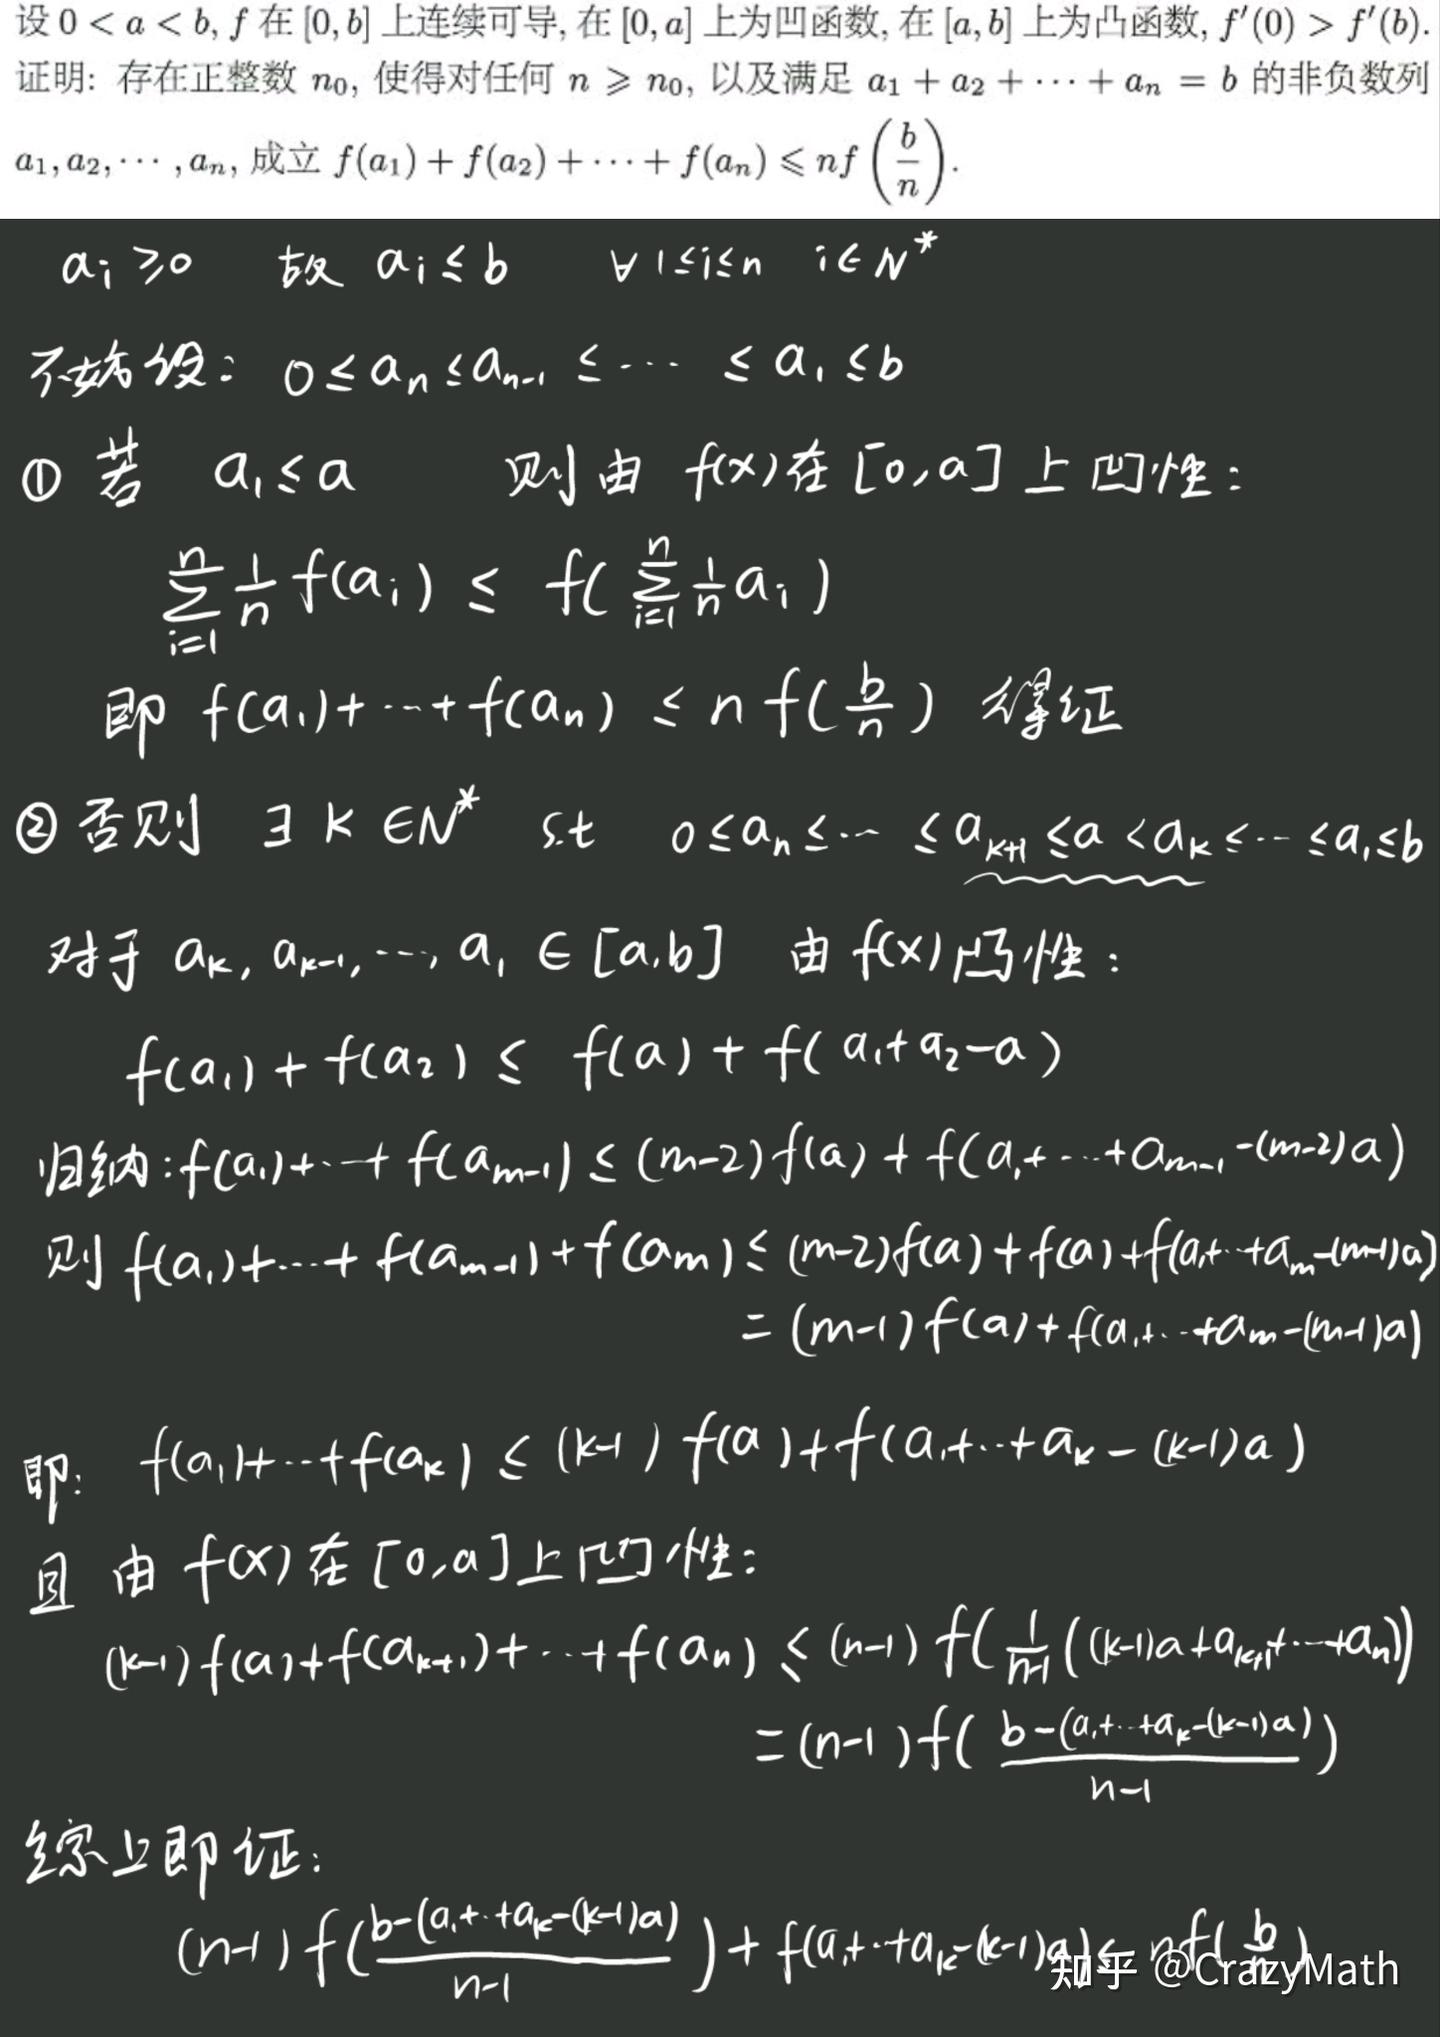 设 0 < a < b, f 在 [0, b] 上连续可导, 在 [0, a] 上为凹函数, 在 [a, b] 上为凸函数, f′(0) > f′(b).
证明: 存在正整数 n₀, 使得对任何 n ⩾ n₀, 以及满足 a₁ + a₂ + ··· + aₙ = b 的非负数列
a₁, a₂, ··· , aₙ, 成立 f(a₁) + f(a₂) + ··· + f(aₙ) ⩽ nf(b/n).
aᵢ ≥ 0 故 aᵢ ≤ b ∀ 1≤i≤n i∈N*
不妨设: 0 ≤ aₙ ≤ aₙ₋₁ ≤ ··· ≤ a₁ ≤ b
① 若 a₁ ≤ a 则由 f(x) 在 [0,a] 上凹性:
∑ᵢ₌₁ⁿ 1/n f(aᵢ) ≤ f(∑ᵢ₌₁ⁿ 1/n aᵢ)
即 f(a₁)+···+f(aₙ) ≤ n f(b/n) 得证
② 否则 ∃ k ∈N* s.t 0≤aₙ≤··· ≤aₖ₊₁ ≤a <aₖ≤···≤a₁≤b
对于 aₖ, aₖ₋₁, ···, a₁ ∈ [a,b] 由 f(x) 凸性:
f(a₁) + f(a₂) ≤ f(a) + f(a₁+a₂-a)
归纳:f(a₁)+···+ f(aₘ₋₁) ≤ (m-2)f(a) + f(a₁+···+aₘ₋₁-(m-2)a)
则 f(a₁)+···+ f(aₘ₋₁)+f(aₘ) ≤ (m-2)f(a)+f(a)+f(a₁+··+aₘ-(m-1)a)
= (m-1)f(a)+f(a₁+···+aₘ-(m-1)a)
即: f(a₁)+···+f(aₖ) ≤ (k-1) f(a)+f(a₁+··+aₖ-(k-1)a)
且 由 f(x) 在 [0,a] 上凹性:
(k-1)f(a)+f(aₖ₊₁)+···+f(aₙ) ≤ (n-1) f(1/(n-1) ((k-1)a+aₖ₊₁+···+aₙ))
= (n-1)f((b-(a₁+··+aₖ-(k-1)a))/(n-1))
综上即证:
(n-1)f((b-(a₁+··+aₖ-(k-1)a))/(n-1)) + f(a₁+··+aₖ-(k-1)a)≤ nf(b/n)
知乎 @CrazyMath